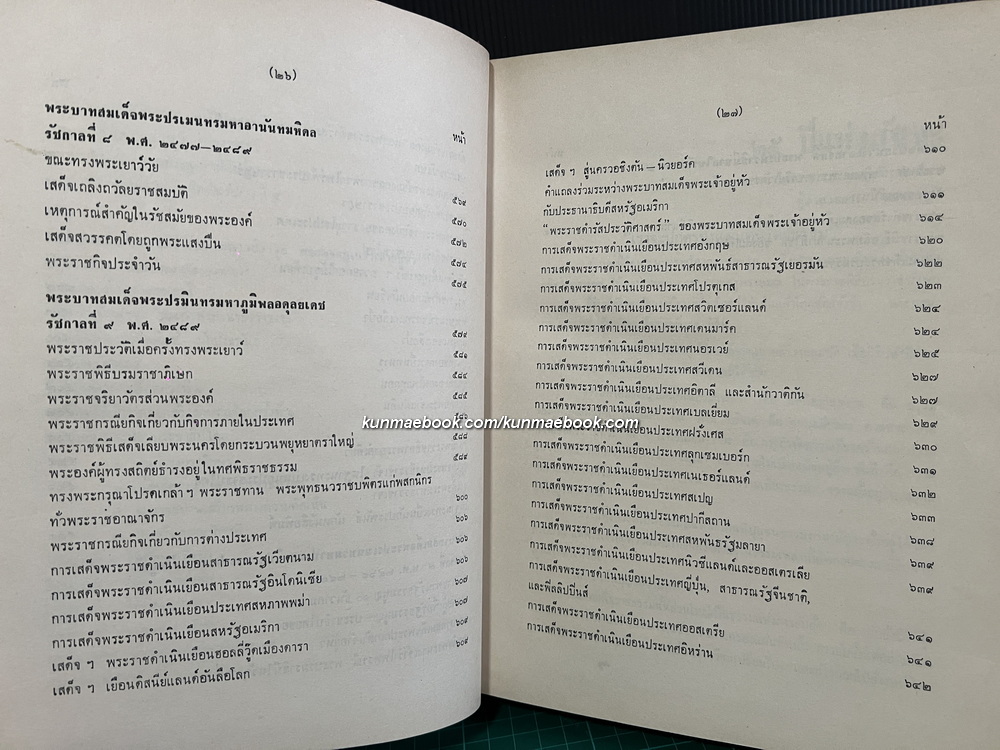 (๒๖)
หน้า
พระบาทสมเด็จพระปรเมนทรมหาอานันทมหิดล
รัชกาลที่ ๘ พ.ศ. ๒๔๗๗—๒๔๘๙
ขณะทรงพระเยาว์วัย ๕๖๙
เสด็จเถลิงถวัลยราชสมบัติ ๕๗๐
เหตุการณ์สำคัญในรัชสมัยของพระองค์ ๕๗๒
เสด็จสวรรคตโดยถูกพระแสงปืน ๕๗๔
พระราชกิจประจำวัน ๕๗๕
พระบาทสมเด็จพระปรมินทรมหาภูมิพลอดุลยเดช
รัชกาลที่ ๙ พ.ศ. ๒๔๘๙
พระราชประวัติเมื่อครั้งทรงพระเยาว์
พระราชพิธีบรมราชาภิเษก
พระราชจริยาวัตรส่วนพระองค์
พระราชกรณียกิจเกี่ยวกับกิจการภายในประเทศ
พระราชพิธีเสด็จเลียบพระนครโดยกระบวนพยุหยาตราใหญ่
พระองค์ผู้ทรงสถิตย์ธำรงอยู่ในทศพิธราชธรรม
ทรงพระกรุณาโปรดเกล้าฯ พระราชทาน พระพุทธนวราชบพิตรแก่พสกนิกร
ทั่วพระราชอาณาจักร ๖๐๐
พระราชกรณียกิจเกี่ยวกับการต่างประเทศ ๖๐๖
การเสด็จพระราชดำเนินเยือนสาธารณรัฐเวียตนาม ๖๐๖
การเสด็จพระราชดำเนินเยือนสาธารณรัฐอินโดนีเซีย ๖๐๖
การเสด็จพระราชดำเนินเยือนประเทศสหภาพพม่า ๖๐๗
การเสด็จพระราชดำเนินเยือนสหรัฐอเมริกา ๖๐๗
เสด็จ ฯ พระราชดำเนินเยือนฮอลลี่วู๊ดเมืองดารา ๖๐๙
เสด็จ ฯ เยือนดิสนีย์แลนด์อันลือโลก ๖๐๙
(๒๗)
หน้า
เสด็จ ฯ สู่นครวอชิงตัน — นิวยอร์ค ๖๑๐
คำแถลงร่วมระหว่างพระบาทสมเด็จพระเจ้าอยู่หัว
กับประธานาธิบดีสหรัฐอเมริกา ๖๑๑
“พระราชดำรัสประวัติศาสตร์” ของพระบาทสมเด็จพระเจ้าอยู่หัว ๖๑๔
การเสด็จพระราชดำเนินเยือนประเทศอังกฤษ ๖๒๐
การเสด็จพระราชดำเนินเยือนประเทศสหพันธ์สาธารณรัฐเยอรมัน ๖๒๒
การเสด็จพระราชดำเนินเยือนประเทศโปรตุเกส ๖๒๓
การเสด็จพระราชดำเนินเยือนประเทศสวิตเซอร์แลนด์ ๖๒๔
การเสด็จพระราชดำเนินเยือนประเทศเดนมาร์ค ๖๒๔
การเสด็จพระราชดำเนินเยือนประเทศนอรเวย์ ๖๒๕
การเสด็จพระราชดำเนินเยือนประเทศสวีเดน ๖๒๗
การเสด็จพระราชดำเนินเยือนประเทศอิตาลี และสำนักวาติกัน ๖๒๗
การเสด็จพระราชดำเนินเยือนประเทศเบลเยี่ยม ๖๒๙
ดำเนินเยือนประเทศฝรั่งเศส ๖๓๐
การเสด็จพระราชดำเนินเยือนประเทศลุกเซมเบอร์ก ๖๓๑
การเสด็จพระราชดำเนินเยือนประเทศเนเธอร์แลนด์ ๖๓๒
การเสด็จพระราชดำเนินเยือนประเทศสเปญ ๖๓๓
การเสด็จพระราชดำเนินเยือนประเทศปากีสถาน ๖๓๘
การเสด็จพระราชดำเนินเยือนประเทศสหพันธรัฐมลายา ๖๓๙
การเสด็จพระราชดำเนินเยือนประเทศนิวซีแลนด์และออสเตรเลีย ๖๓๙
การเสด็จพระราชดำเนินเยือนประเทศญี่ปุ่น, สาธารณรัฐจีนชาติ,
และฟิลลิปปินส์ ๖๔๑
การเสด็จพระราชดำเนินเยือนประเทศออสเตรีย ๖๔๑
การเสด็จพระราชดำเนินเยือนประเทศอิหร่าน ๖๔๒
kunmaebook.com/kunmaebook.com